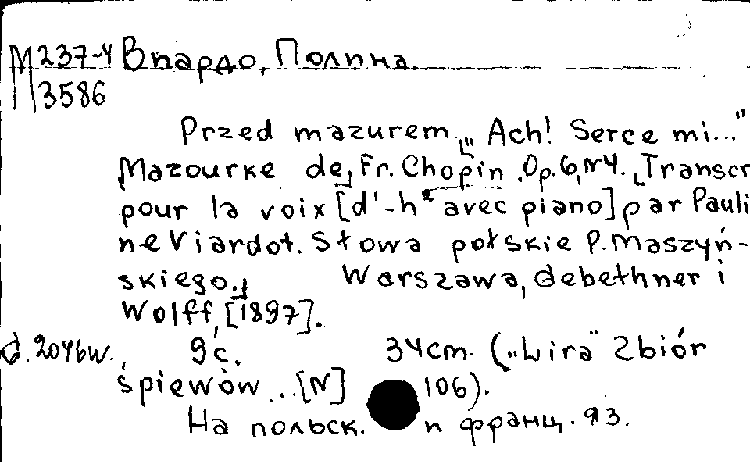 М 237-4 Виардо, Полина.
3586
Przed mazurem „Ach! Serce mi..."
Mazourke de Fr. Chopin. Op. 6, N4. [Transcr
pour la voix [d'-h² avec piano] par Pauli
ne Viardot. Słowa polskie P. Maszyń-
skiego.] Warszawa, Gebethner i
Wolff, [1897].
d. 2046w. 9 с. 34 cm. („Lira" Zbiór
śpiewów... [N] 106).
На польск. и франц. яз.